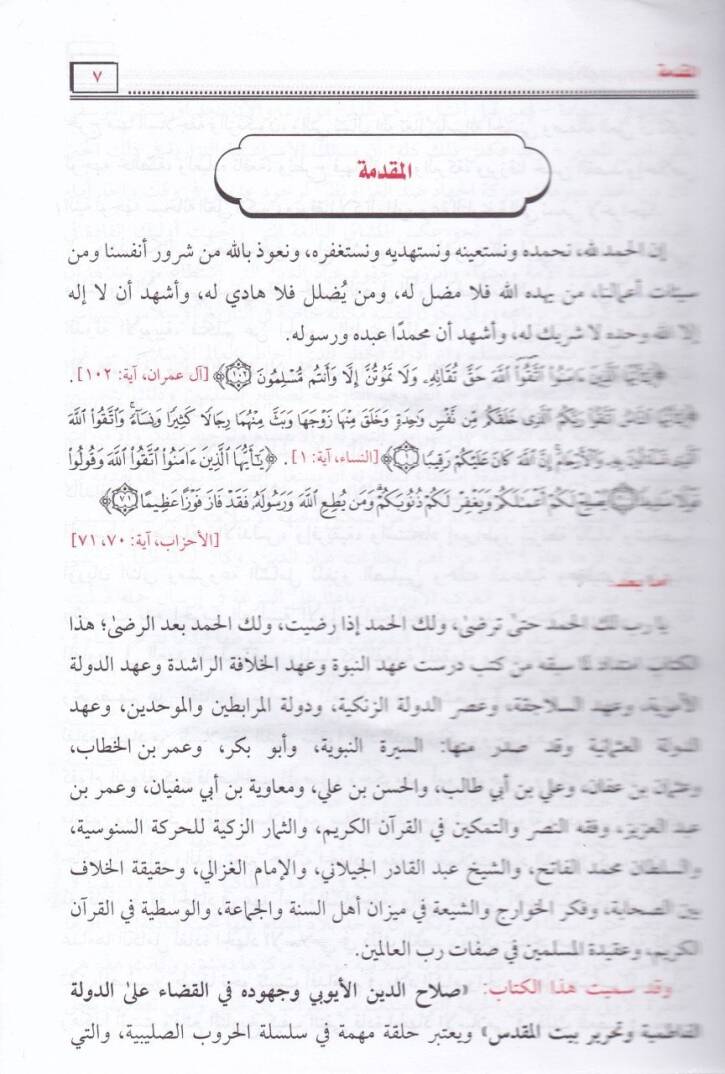 المقدمة
٧
المقدمة
إن الحمد لله، نحمده ونستعينه ونستهديه ونستغفره، ونعوذ بالله من شرور أنفسنا ومن
سيئات أعمالنا، من يهده الله فلا مضل له، ومن يُضلل فلا هادي له، وأشهد أن لا إله
إلا الله وحده لا شريك له، وأشهد أن محمدًا عبده ورسوله.
﴿يَٰٓأَيُّهَا ٱلَّذِينَ ءَامَنُوا۟ ٱتَّقُوا۟ ٱللَّهَ حَقَّ تُقَاتِهِۦ وَلَا تَمُوتُنَّ إِلَّا وَأَنتُم مُّسْلِمُونَ ١٠٢﴾ [آل عمران، آية: ١٠٢] .
﴿يَٰٓأَيُّهَا ٱلنَّاسُ ٱتَّقُوا۟ رَبَّكُمُ ٱلَّذِى خَلَقَكُم مِّن نَّفْسٍ وَٰحِدَةٍ وَخَلَقَ مِنْهَا زَوْجَهَا وَبَثَّ مِنْهُمَا رِجَالًا كَثِيرًا وَنِسَآءً ۚ وَٱتَّقُوا۟ ٱللَّهَ
ٱلَّذِى تَسَآءَلُونَ بِهِۦ وَٱلْأَرْحَامَ ۚ إِنَّ ٱللَّهَ كَانَ عَلَيْكُمْ رَقِيبًا ١﴾ [النساء، آية: ١] . ﴿يَٰٓأَيُّهَا ٱلَّذِينَ ءَامَنُوا۟ ٱتَّقُوا۟ ٱللَّهَ وَقُولُوا۟
قَوْلًا سَدِيدًا ٧٠ يُصْلِحْ لَكُمْ أَعْمَٰلَكُمْ وَيَغْفِرْ لَكُمْ ذُنُوبَكُمْ ۗ وَمَن يُطِعِ ٱللَّهَ وَرَسُولَهُۥ فَقَدْ فَازَ فَوْزًا عَظِيمًا ٧١﴾
[الأحزاب، آية: ٧٠، ٧١]
أما بعد..
يا رب لك الحمد حتىٰ ترضىٰ، ولك الحمد إذا رضيت، ولك الحمد بعد الرضىٰ؛ هذا
الكتاب امتداد لما سبقه من كتب درست عهد النبوة وعهد الخلافة الراشدة وعهد الدولة
الأموية، وعهد السلاجقة، وعصر الدولة الزنكية، ودولة المرابطين والموحدين، وعهد
الدولة العثمانية وقد صدر منها: السيرة النبوية، وأبو بكر، وعمر بن الخطاب،
وعثمان بن عفان، وعلي بن أبي طالب، والحسن بن علي، ومعاوية بن أبي سفيان، وعمر بن
عبد العزيز، وفقه النصر والتمكين في القرآن الكريم، والثمار الزكية للحركة السنوسية،
والسلطان محمد الفاتح، والشيخ عبد القادر الجيلاني، والإمام الغزالي، وحقيقة الخلاف
بين الصحابة، وفكر الخوارج والشيعة في ميزان أهل السنة والجماعة، والوسطية في القرآن
الكريم، وعقيدة المسلمين في صفات رب العالمين.
وقد سميت هذا الكتاب: «صلاح الدين الأيوبي وجهوده في القضاء علىٰ الدولة
الفاطمية وتحرير بيت المقدس» ويعتبر حلقة مهمة في سلسلة الحروب الصليبية، والتي